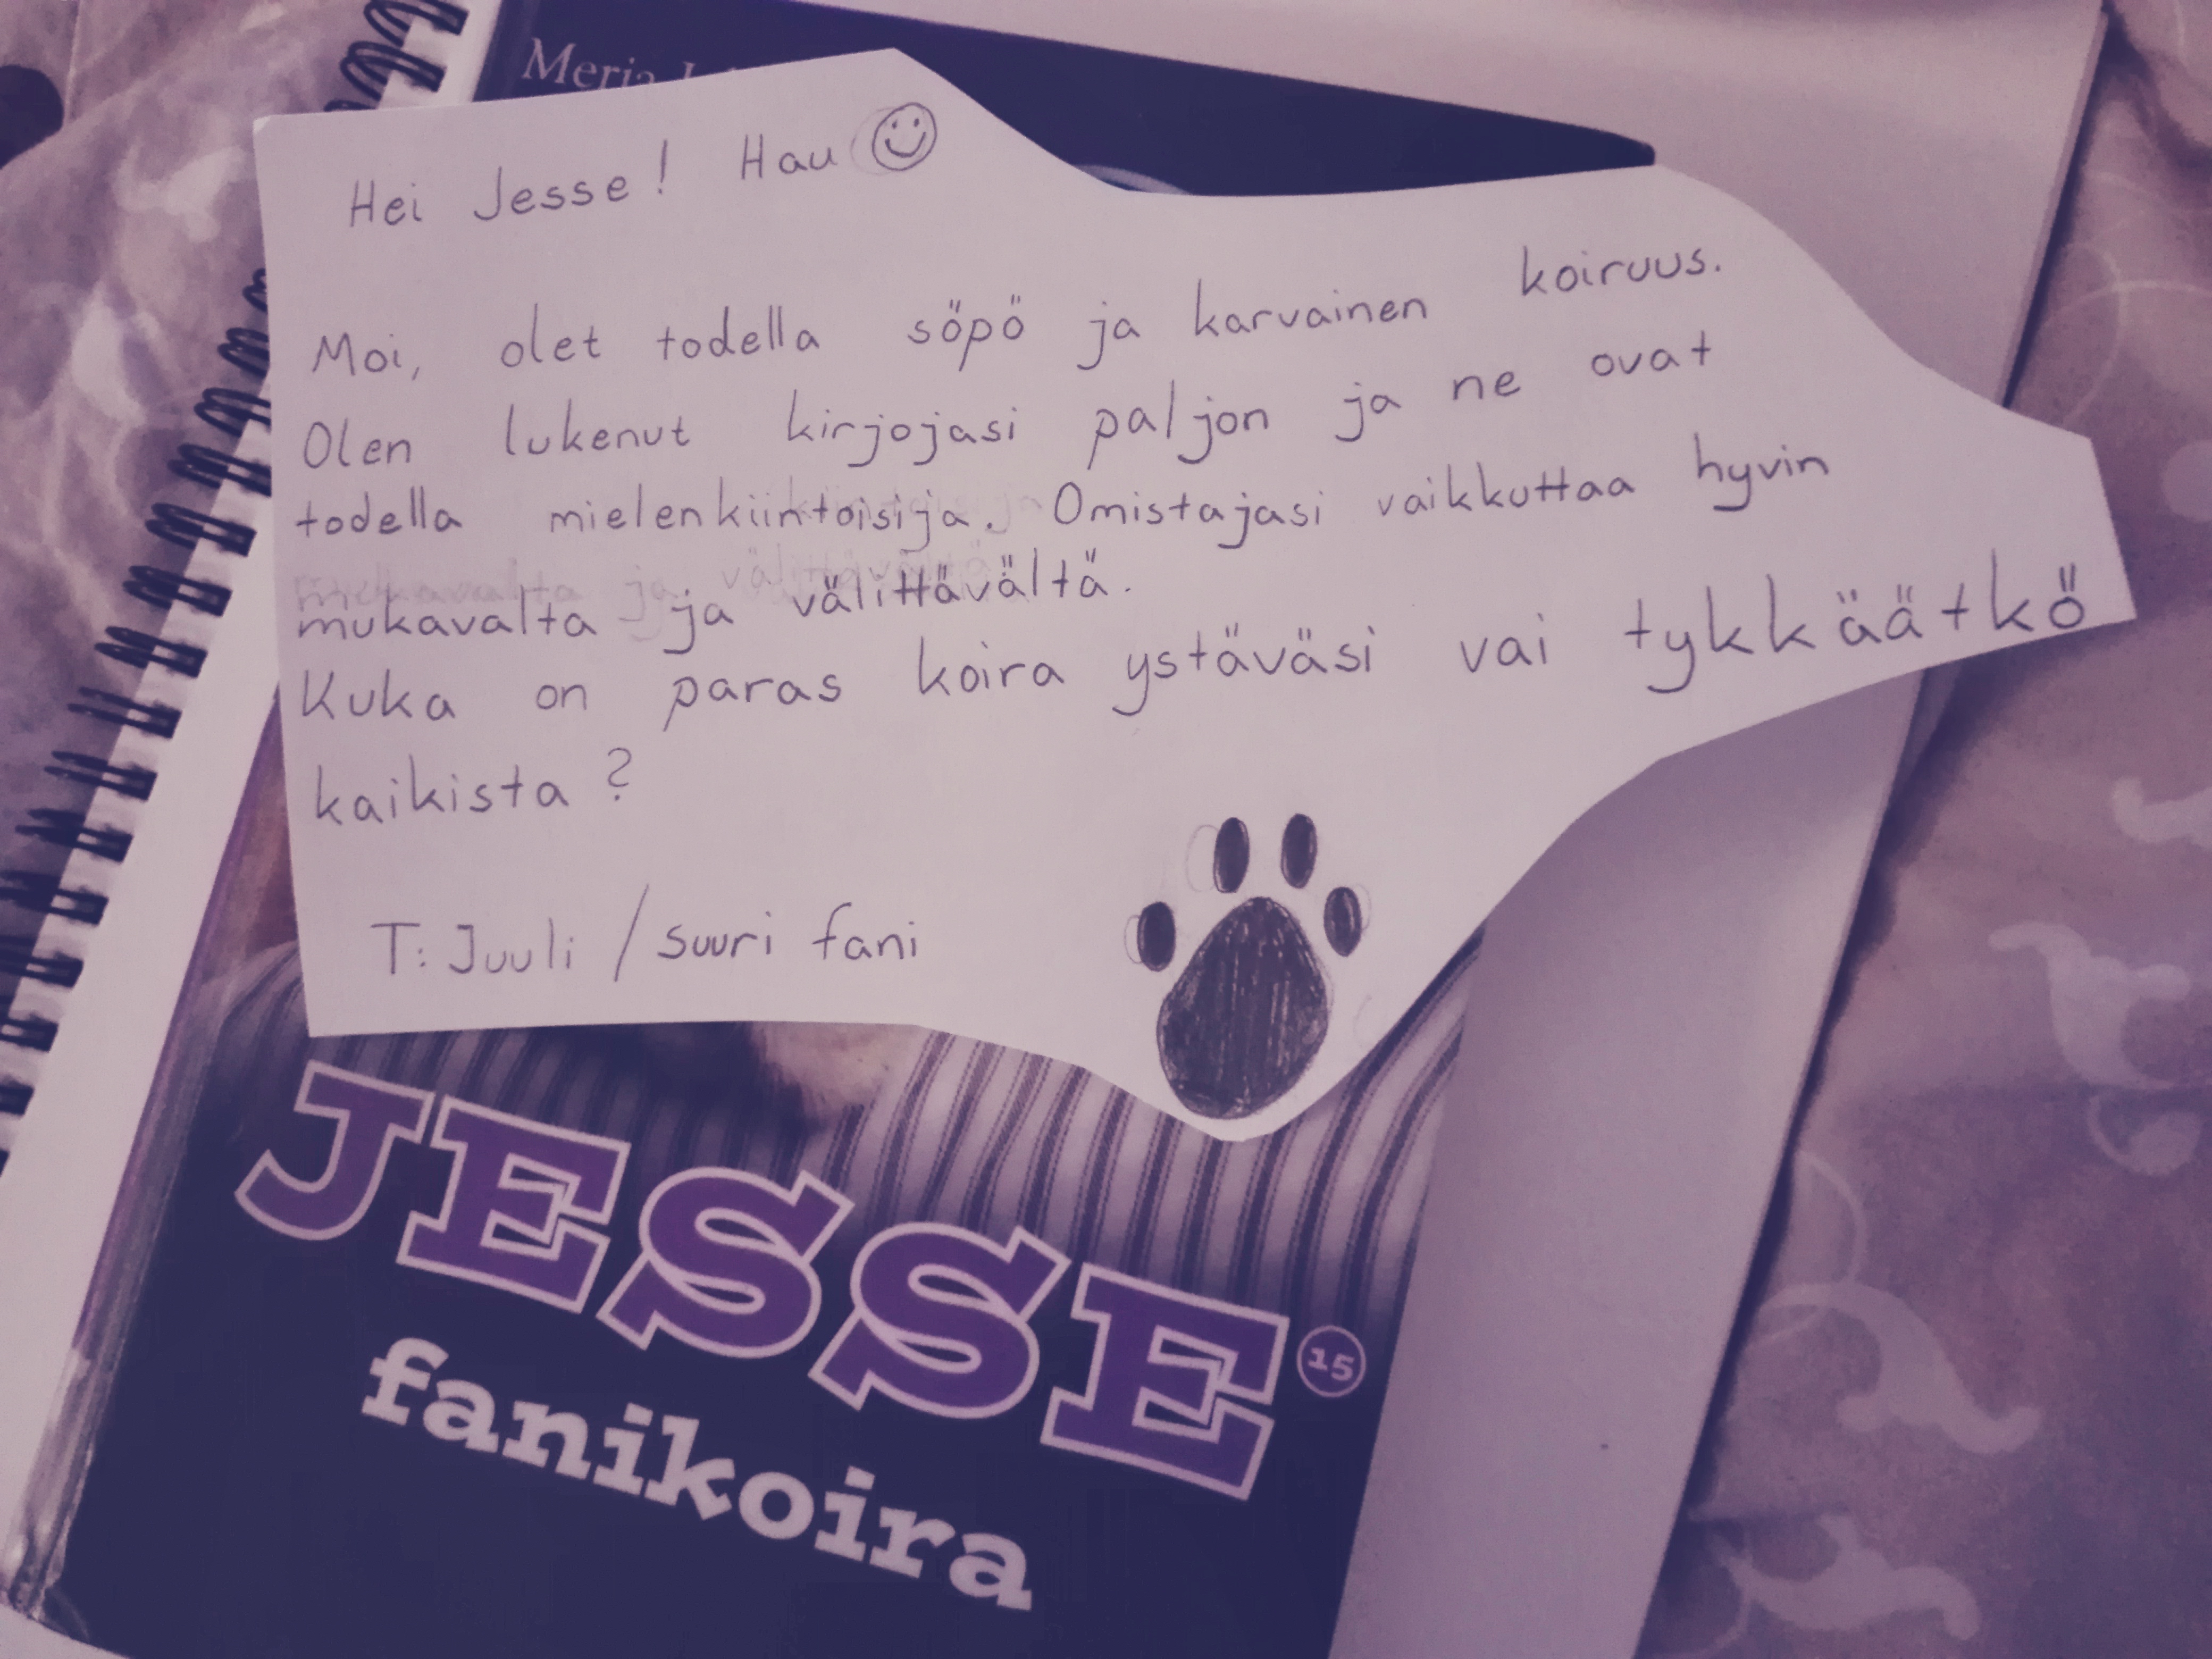 Merja
Hei Jesse! Hau
Moi, olet todella söpö ja karvainen koiruus.
Olen lukenut kirjojasi paljon ja ne ovat
todella mielenkiintoisija. Omistajasi vaikkuttaa hyvin
mukavalta ja välittävältä.
Kuka on paras koira ystäväsi vai tykkäätkö
kaikista?
T: Juuli / suuri fani
JESSE 15
fanikoira